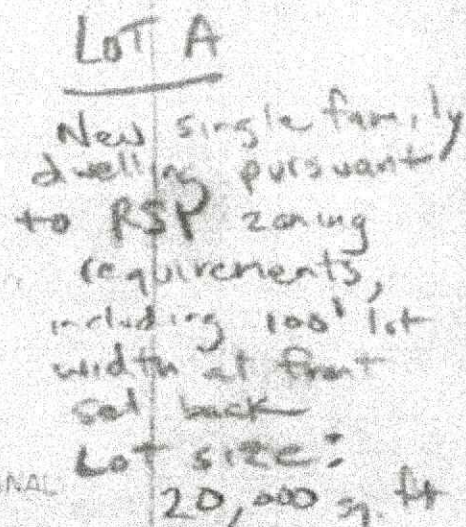 LOT A
New single family
dwelling pursuant
to RSP zoning
requirements,
including 100' lot
width at front
set back
Lot size:
NAL
20,000 sq. ft